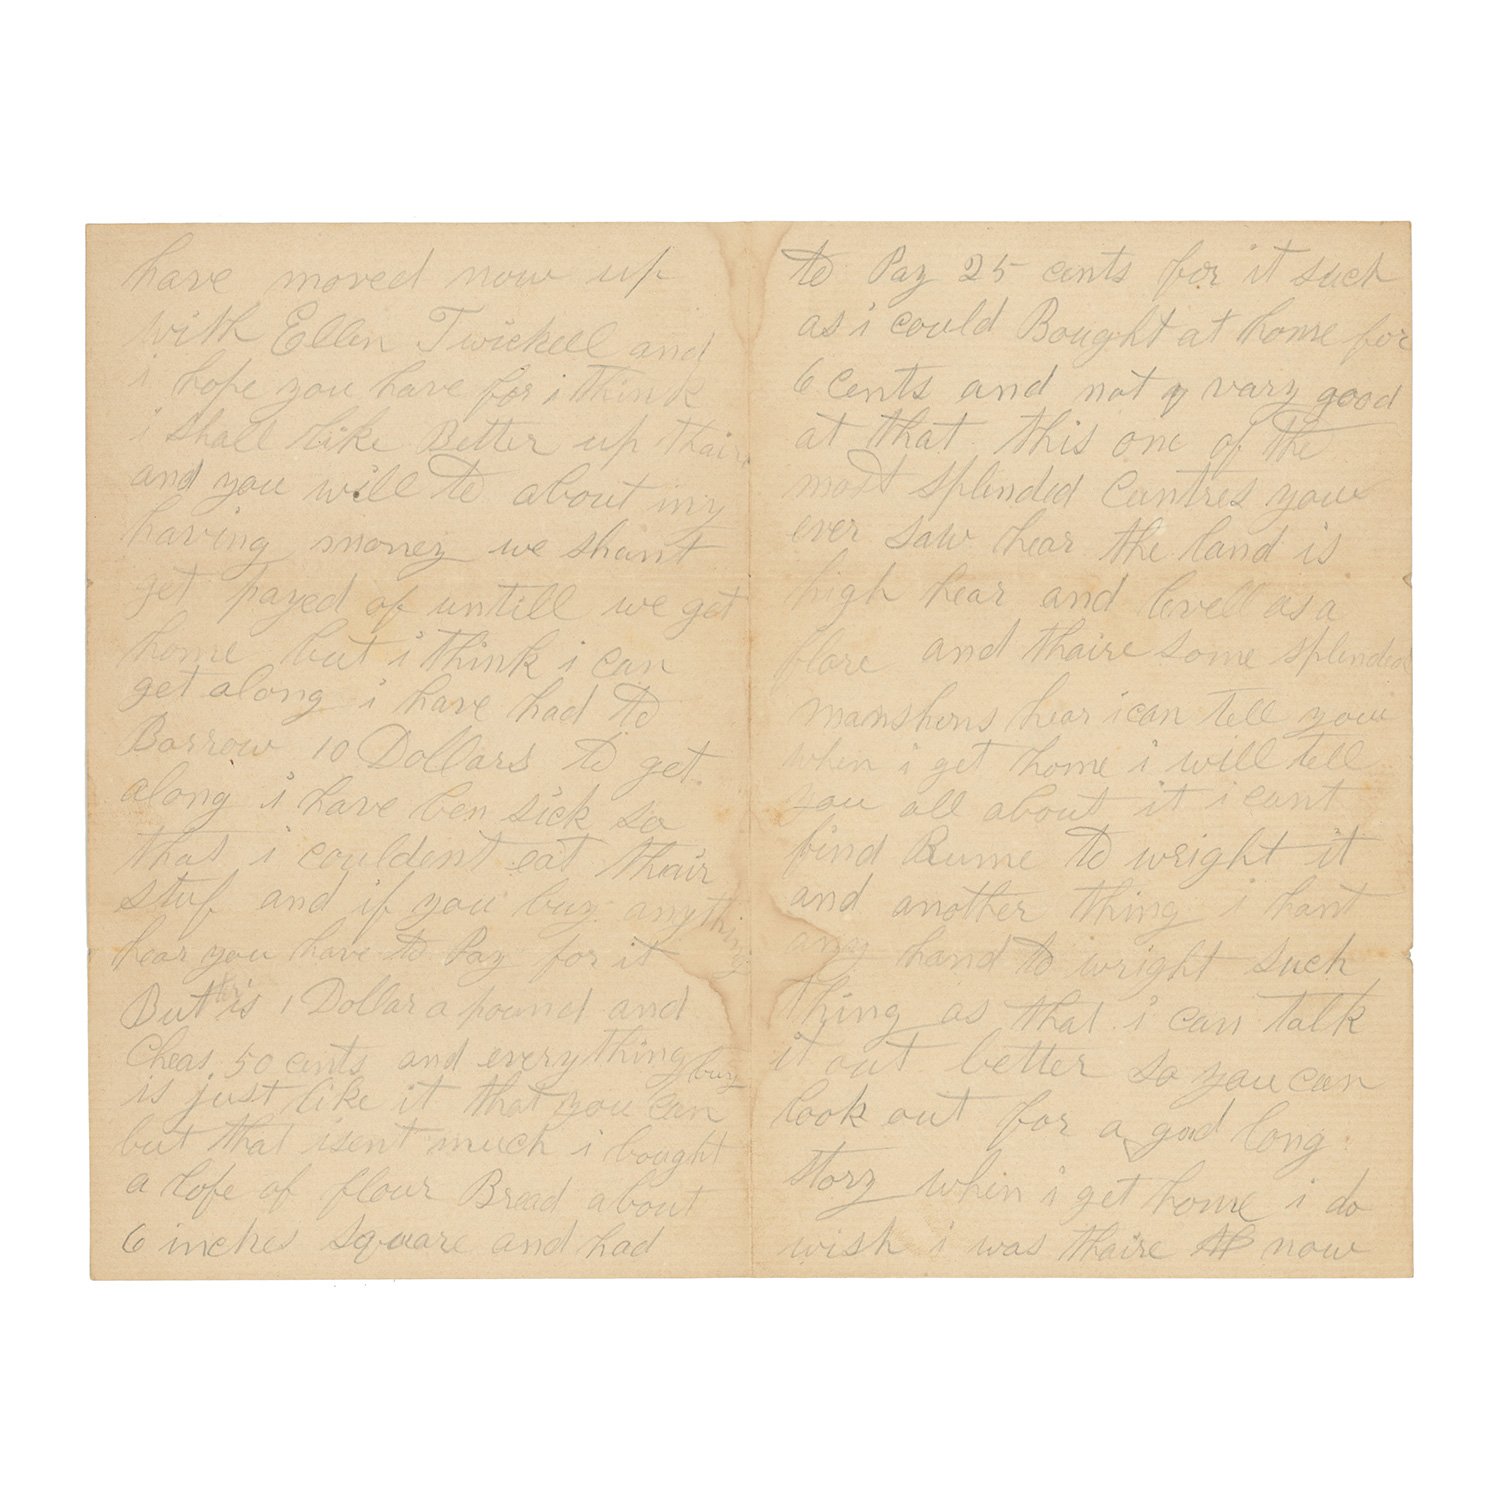 have moved now up
with Ellen Twickell and
i hope you have for i think
i shall like Better up thair
and you will to about my
having money we shant
get payed of untill we get
home but i think i can
get along i have had to
Borrow 10 Dollars to get
along i have ben sick so
that i couldent eat thair
stuf and if you buy anything
hear you have to Pay for it
But is 1 Dollar a pound and
Cheas 50 cents and everything
is just like it that you can buy
but that isent much i bought
a lofe of flour Bread about
6 inches square and had
to Pay 25 cents for it such
as i could Bought at home for
6 cents and not vary good
at that this one of the
most splended Cuntres you
ever saw hear the land is
high hear and levell as a
flore and thaire some splended
manshons hear i can tell you
when i get home i will tell
you all about it i cant
find Rume to wright it
and another thing i hant
any hand to wright such
thing as that i can talk
it out better so you can
look out for a good long
story when i get home i do
wish i was thaire now